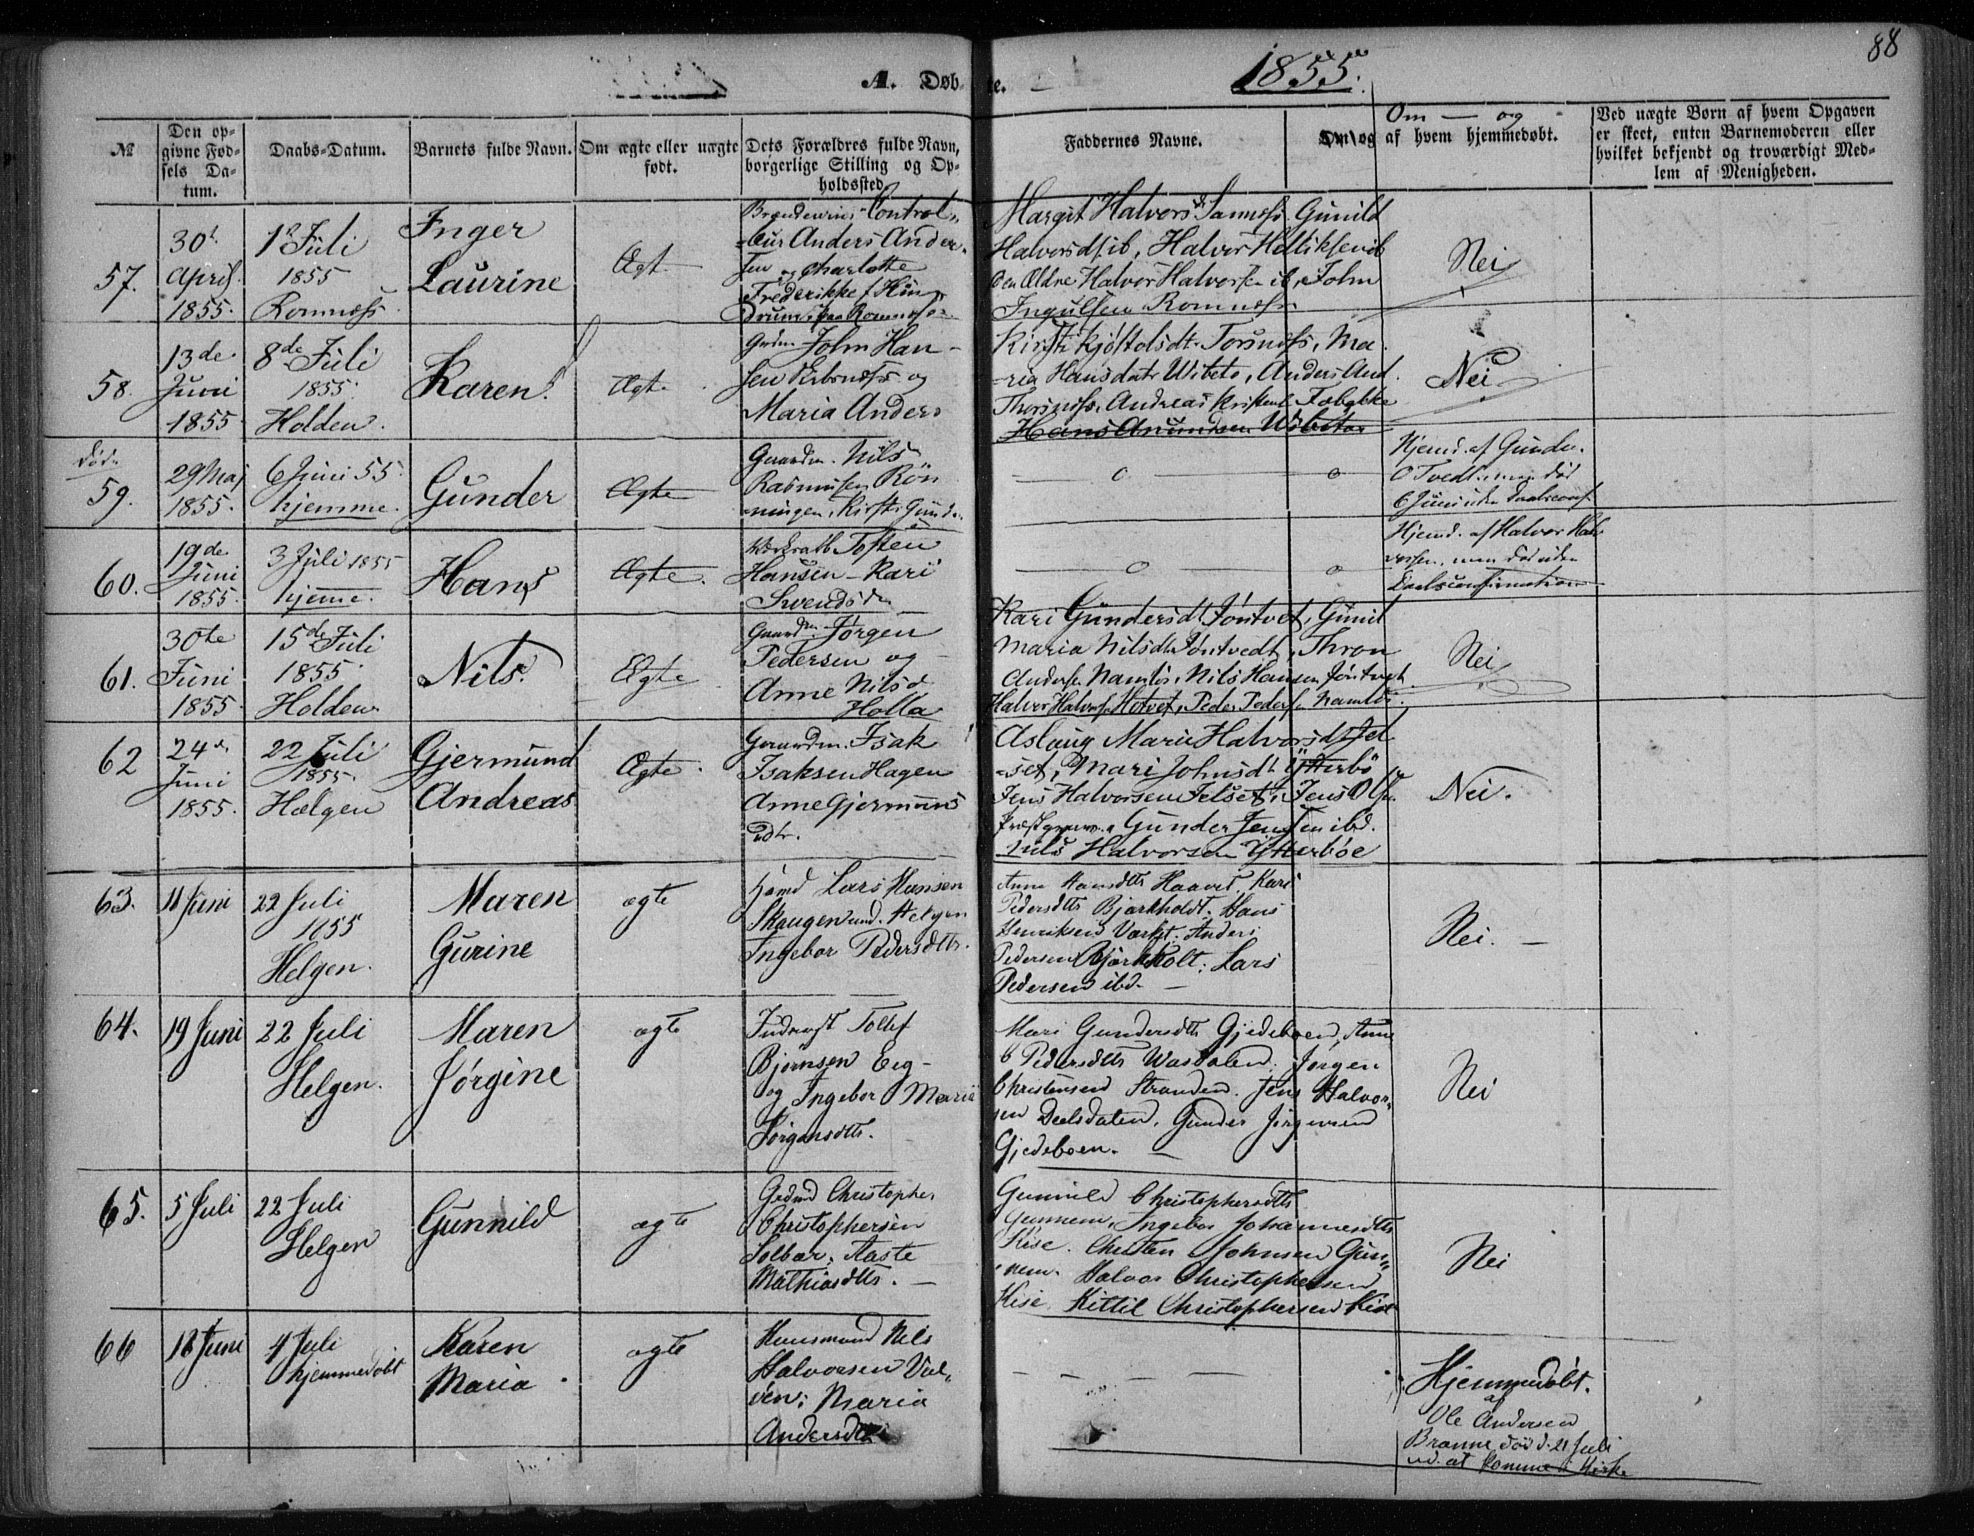 88
A. Døbte. 1855.
№
Den opgivne Fødsels Datum.
Daabs-Datum.
Barnets fulde Navn.
Om ægte eller uægte født.
Dets Forældres fulde Navn, borgerlige Stilling og Opholdssted.
Faddernes Navne.
Om og af hvem hjemmedøbt.
Ved uægte Børn af hvem Opgaven er skeet, enten Barnemoderen eller hvilket bekjendt og troværdigt Medlem af Menigheden.
57.
30t
April
1855.
1st Juli
1855
Romnæss
Inger
Laurine
Ægt
Control-
eur Anders Ander-
sen og Charlotte
Frederikke
Romnæs
Margit Halvorsd. Sannæss, Gunild
Halvorsdt. ib, Halvor
den Ældre Halvor Halvorsen ib, John
Ingulsen Romnæss
Nei
58.
13de
Juni
1855
8de Juli
1855.
Holden.
Karen.
Ægte
John Han-
sen og
Maria Anders
Kirsti Torsnæss, Ma-
ria Hansdatr Wibeto, Anders And.
Andreas
Hans Amundsen Wibetoe
Nei
Død
59.
29 Maj
1855.
6 Juni 55.
hjemme.
Gunder
Ægte
Gaardm. Nils
Rasmussen Røn-
ningen, Kirsti Gund.
o o
Hjemd. af Gunder
O Tvedt, men død
6 Juni uden Daabsconf.
60.
19de
Juni
1855.
3 Juli 1855
hjeme.
Hans
Ægte.
Tosten
Hansen - Kari
Svendsd
o o
Hjemd. af Halvor Hal-
vorsen, men død uden
Daabsconfirmation
61.
30te
Juni
1855.
15de Juli
1855.
Holden
Nils.
Ægte
Gaardm. Jørgen
Pedersen og
Anne Nilsd
Holla
Kari Gundersdt Jøntvet, Gunil
Maria Nilsdt Jøntvedt, Thron
Anders. Namløs, Nils Hansen Jøntvet
Halvor Halvors. Hotvet, Peder Peders. Namløs.
Nei
62
24de
Juni
1855.
22 Juli
1855.
Hælgen
Gjermund
Andreas
Ægte.
Gaardm. Isak
Isaksen Hagen
Anne Gjermuns
Ddtr.
Aslaug Marie Halvorsdt Jel-
set, Mari Johnsdt Ytterbö
Jens Halvorsen Jelset, Jens Ols.
Gunder Jensen ibd.
Nils Halvorsen Ytterböe
Nei.
63.
11 Juni
22 Juli
1855
Helgen.
Maren
Gurine
ægte
Lars Hansen
Skaugen und. Helgen
Ingebor Pedersdtt.
Anne Hansdtt. Haavet. Kari
Pedersdtt. Bjørkholdt. Hans
Henriksen Anders
Pedersen Bjørkholt. Lars
Pedersen ibd.
Nei.
64.
19 Juni
22 Juli
Helgen.
Maren
Jørgine
ægte
Inderst Tollef
Bjørnsen Eeg
og Ingebor Marie
Jørgensdtt.
Mari Gundersdtt. Gjedeboen, Anne
Pedersdtt. Wasdalen. Jørgen
Christensen Stranden. Jens Halvor-
sen Deelsdalen. Gunder Jørgensen
Gjedeboen.
Nei
65.
5 Juli
22 Juli
Helgen
Gunnild
ægte
Grdmd Christopher
Christophersen
Solbær, Aaste
Mathiasdtt.
Gunnild Christophersdtt.
Gunnem, Ingebor Johannesdtt.
Kise. Christen Johnsen Gun-
nem. Halvor Christophersen
Kise. Kittil Christophersen Kise
Nei
66
18 Juni
4 Juli
hjemmedøbt
Karen
Maria
ægte
Huusmand Nils
Halvorsen Val-
øen; Maria
Andersdtt.
Hjemmedøbt.
af
Ole Andersen
død d. 21 Juli
ud. at komme i Kirke